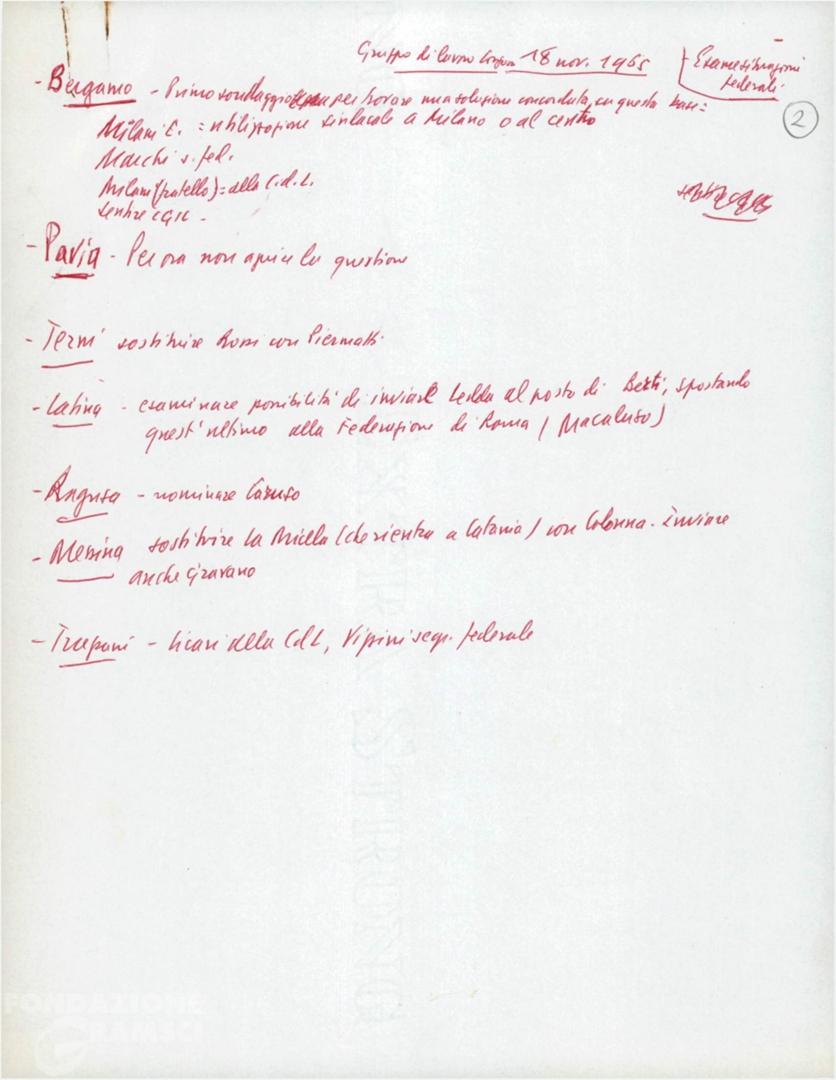 Gruppo di lavoro 18 nov. 1965
Esame situazioni
federali
2
- Bergamo - Primo sondaggio per trovare una soluzione concordata, su questa base:
Milani E. = utilizzazione sindacale a Milano o al centro
Marchi s. fed.
Milani (fratello) = alla C.d.L.
sentire CGIL -
- Pavia - Per ora non aprire la questione
- Terni sostituire Rossi con Piermatti
- Latina - esaminare possibilità di inviare Ledda al posto di Berti, spostando
quest'ultimo alla Federazione di Roma (Macaluso)
- Ragusa - nominare Caruso
- Messina sostituire La Micella (che rientra a Catania) con Colonna. Inviare
anche Gravano
- Trapani - Licari della CdL, Vizzini segr. federale
FONDAZIONE
GRAMSCI